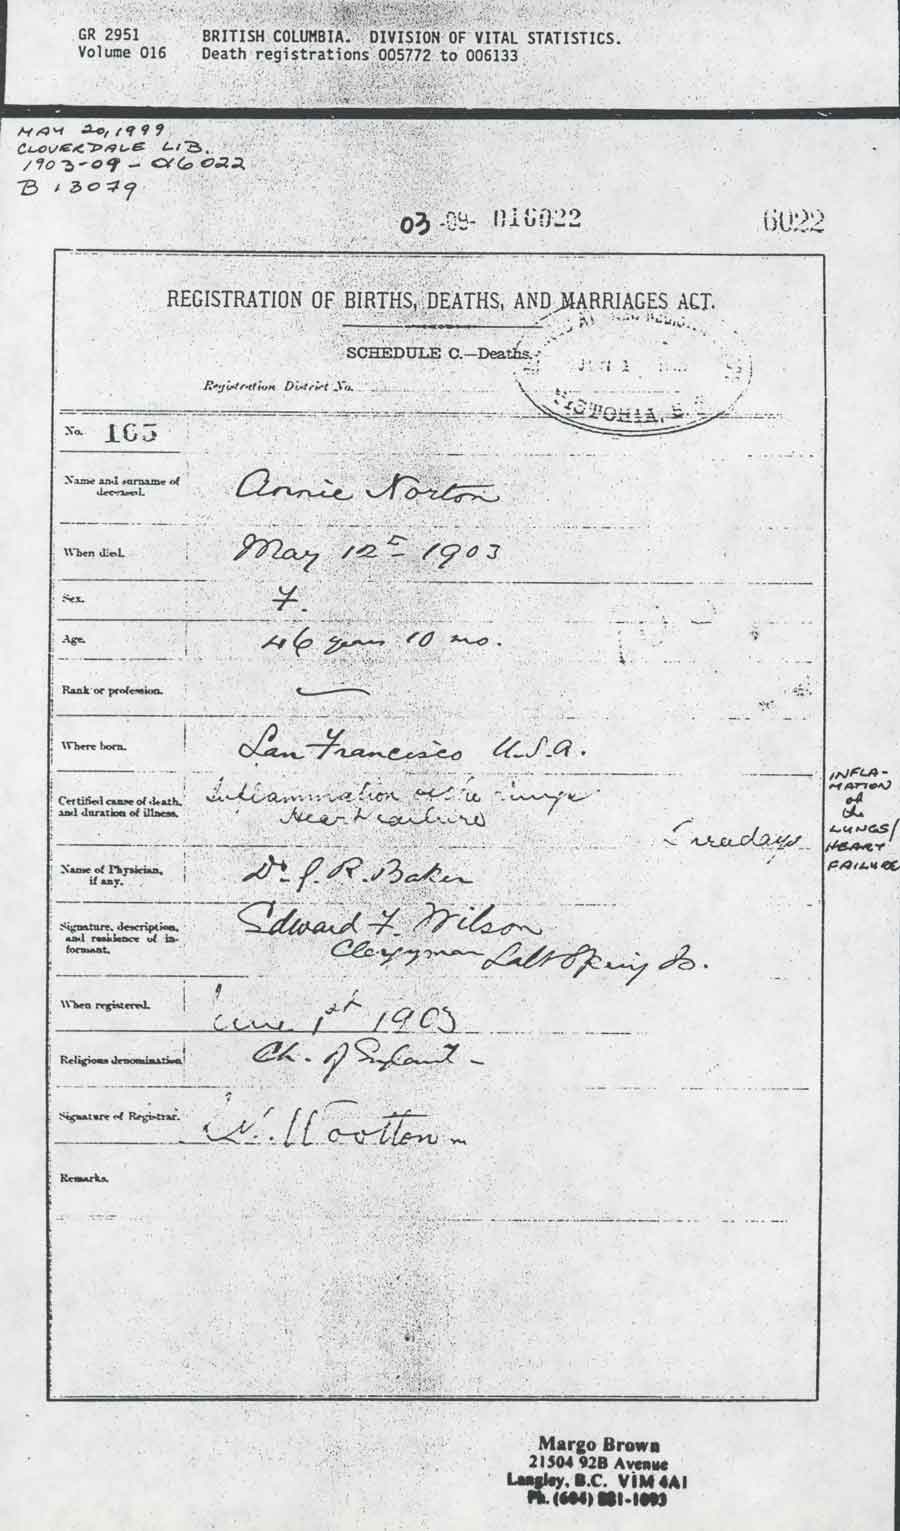 GR 2951 BRITISH COLUMBIA. DIVISION OF VITAL STATISTICS.
Volume 016 Death registrations 005772 to 006133
MAY 20, 1999
CLOVERDALE LIB.
1903-09-016022
B 13079
03 -09- 016022 6022
REGISTRATION OF BIRTHS, DEATHS, AND MARRIAGES ACT.
SCHEDULE C.—Deaths.
Registration District No.
VICTORIA, B.C.
No. 165
Name and surname of deceased. Annie Norton
When died. May 12 1903
Sex. F.
Age. 46 years 10 mo.
Rank or profession.
Where born. San Francisco U.S.A.
Certified cause of death, Inflammation of the lungs
and duration of illness. Heart failure
days
INFLA-
MATION
of
the
LUNGS/
HEART
FAILURE
Name of Physician, if any. Dr. J. R. Baker
Signature, description, Edward F. Wilson
and residence of in- Clergyman Salt Spring Is.
formant.
When registered. June 1st 1903
Religious denomination Ch. of England -
Signature of Registrar. Wootton
Remarks.
Margo Brown
21504 92B Avenue
Langley, B.C. V1M 4A1
Ph. (604) 881-1093